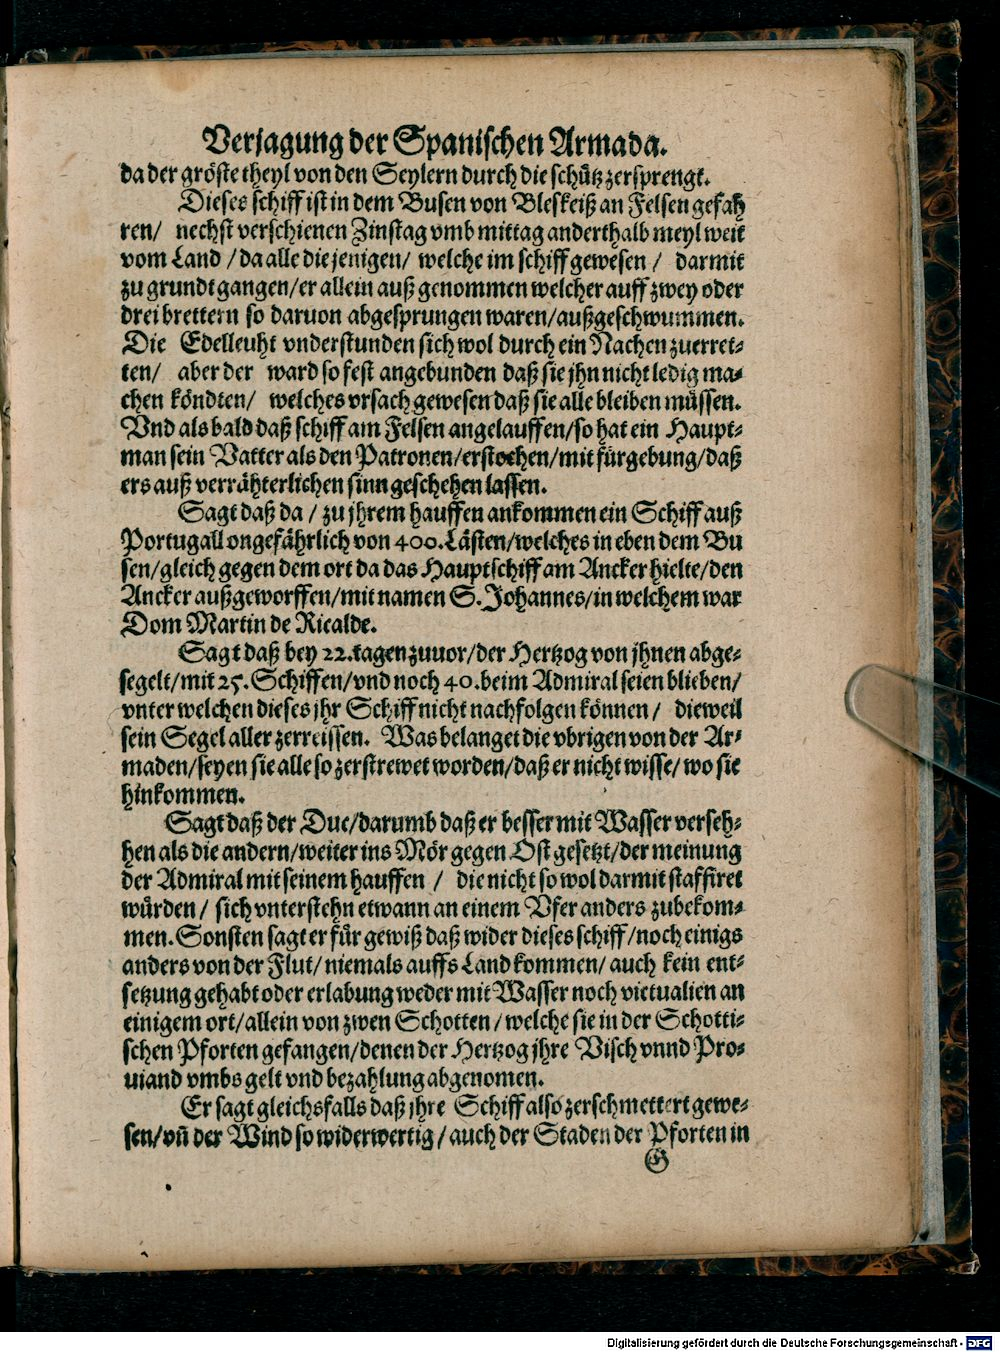 Verjagung der Spanischen Armada.
da der gröste theyl von den Seylern durch die schütz zersprengt.
Dieses schiff ist in dem Busen von Bleskeiß an Felsen gefah
ren/ nechst verschienen Zinstag vmb mittag anderthalb meyl weit
vom Land /da alle die jenigen/ welche im schiff gewesen / darmit
zu grundt gangen/er allein auß genommen welcher auff zwey oder
drei brettern so daruon abgesprungen waren/außgeschwummen.
Die Edelleuht vnderstunden sich wol durch ein Nachen zuerret-
ten/ aber der ward so fest angebunden daß sie jhn nicht ledig ma-
chen köndten/ welches vrsach gewesen daß sie alle bleiben müssen.
Vnd als bald daß schiff am Felsen angelauffen/so hat ein Haupt-
man sein Vatter als den Patronen/erstochen/mit fürgebung/daß
ers auß verrähterlichen sinn geschehen lassen.
Sagt daß da / zu jhrem hauffen ankommen ein Schiff auß
Portugall ongefährlich von 400.Lästen/welches in eben dem Bu
sen/gleich gegen dem ort da das Hauptschiff am Ancker hielte/den
Ancker außgeworffen/mit namen S.Johannes/in welchem war
Dom Martin de Ricalde.
Sagt daß bey 22.tagen zuuor/der Hertzog von jhnen abge-
segelt/mit 25.Schiffen/vnd noch 40.beim Admiral seien blieben/
vnter welchen dieses jhr Schiff nicht nachfolgen können/ dieweil
sein Segel aller zerreissen. Was belanget die vbrigen von der Ar-
maden/seyen sie alle so zerstrewet worden/daß er nicht wisse/ wo sie
hinkommen.
Sagt daß der Duc/darumb daß er besser mit Wasser verseh-
hen als die andern/weiter ins Mör gegen Ost gesetzt/der meinung
der Admiral mit seinem hauffen / die nicht so wol darmit staffiret
würden/ sich vnterstehn etwann an einem Vfer anders zubekom-
men. Sonsten sagt er für gewiß daß wider dieses schiff/noch einigs
anders von der Flut/ niemals auffs Land kommen/ auch kein ent-
setzung gehabt oder erlabung weder mit Wasser noch victualien an
einigem ort/allein von zwen Schotten/welche sie in der Schotti-
schen Pforten gefangen/denen der Hertzog jhre Visch vnnd Pro-
uiand vmbs gelt vnd bezahlung abgenomen.
Er sagt gleichsfalls daß jhre Schiff also zerschmettert gewe-
sen/vñ der Wind so widerwertig/auch der Staden der Pforten in
G
Digitalisierung gefördert durch die Deutsche Forschungsgemeinschaft - DFG